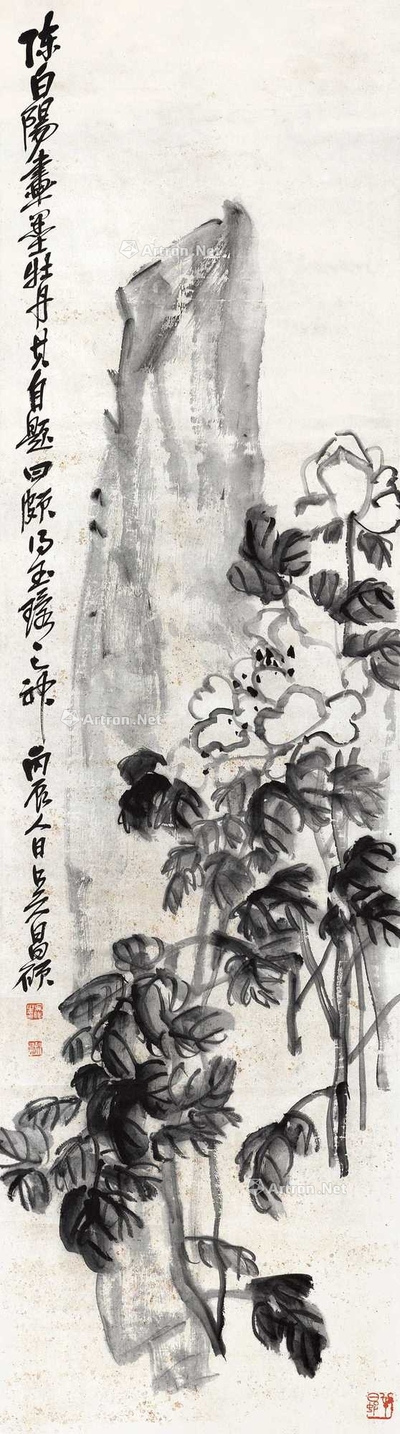 陈白陽畫墨牡丹其自題曰頗得玉環之神
丙辰人日吳昌碩
Artron.Net
Artron.Net
Artron.Net